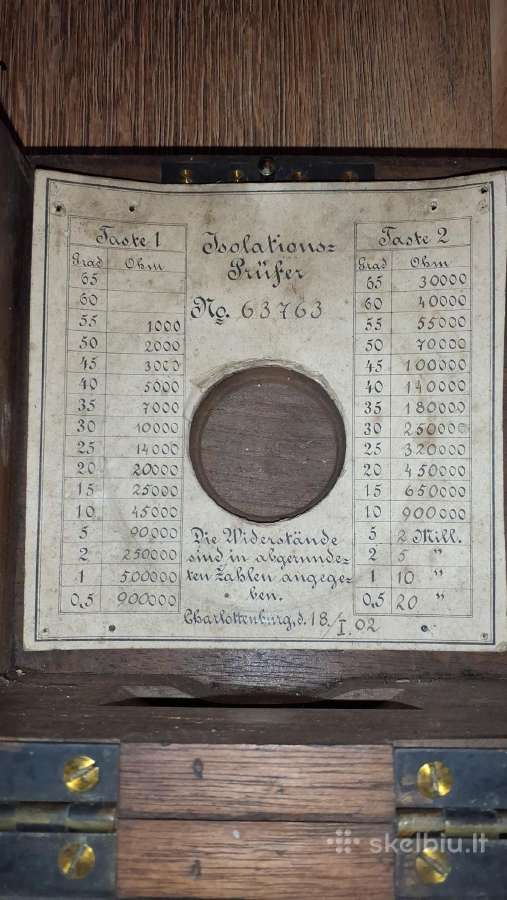 Taste 1
Grad Ohm
65
60
55 1000
50 2000
45 3000
40 5000
35 7000
30 10000
25 14000
20 20000
15 25000
10 45000
5 90000
2 250000
1 500000
0,5 900000
Isolations=
Prüfer
No. 63763
Die Widerstände
sind in abgerunde-
ten Zahlen angege-
ben.
Charlottenburg, d. 18./I.02
Taste 2
Grad Ohm
65 30000
60 40000
55 55000
50 70000
45 100000
40 140000
35 180000
30 250000
25 320000
20 450000
15 650000
10 900000
5 2 Mill.
2 5 "
1 10 "
0,5 20 "
skelbiu.lt